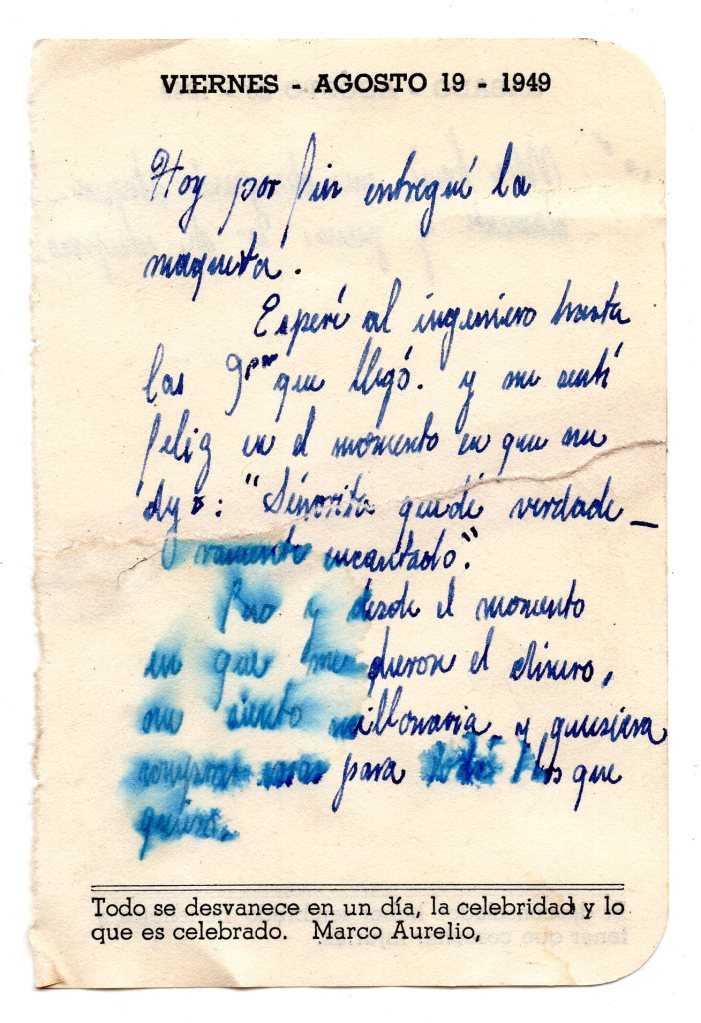 VIERNES - AGOSTO 19 - 1949
Hoy por fin entregué la
maqueta.
Esperé al ingeniero hasta
las 9pm que llegó. y me sentí
feliz en el momento en que me
dijo: "Señorita quedé verdade_
ramente encantado."
Pero desde el momento
en que me dieron el dinero,
me siento millonaria y quisiera
comprar cosas para todos los que
quiero.
Todo se desvanece en un día, la celebridad y lo
que es celebrado. Marco Aurelio.